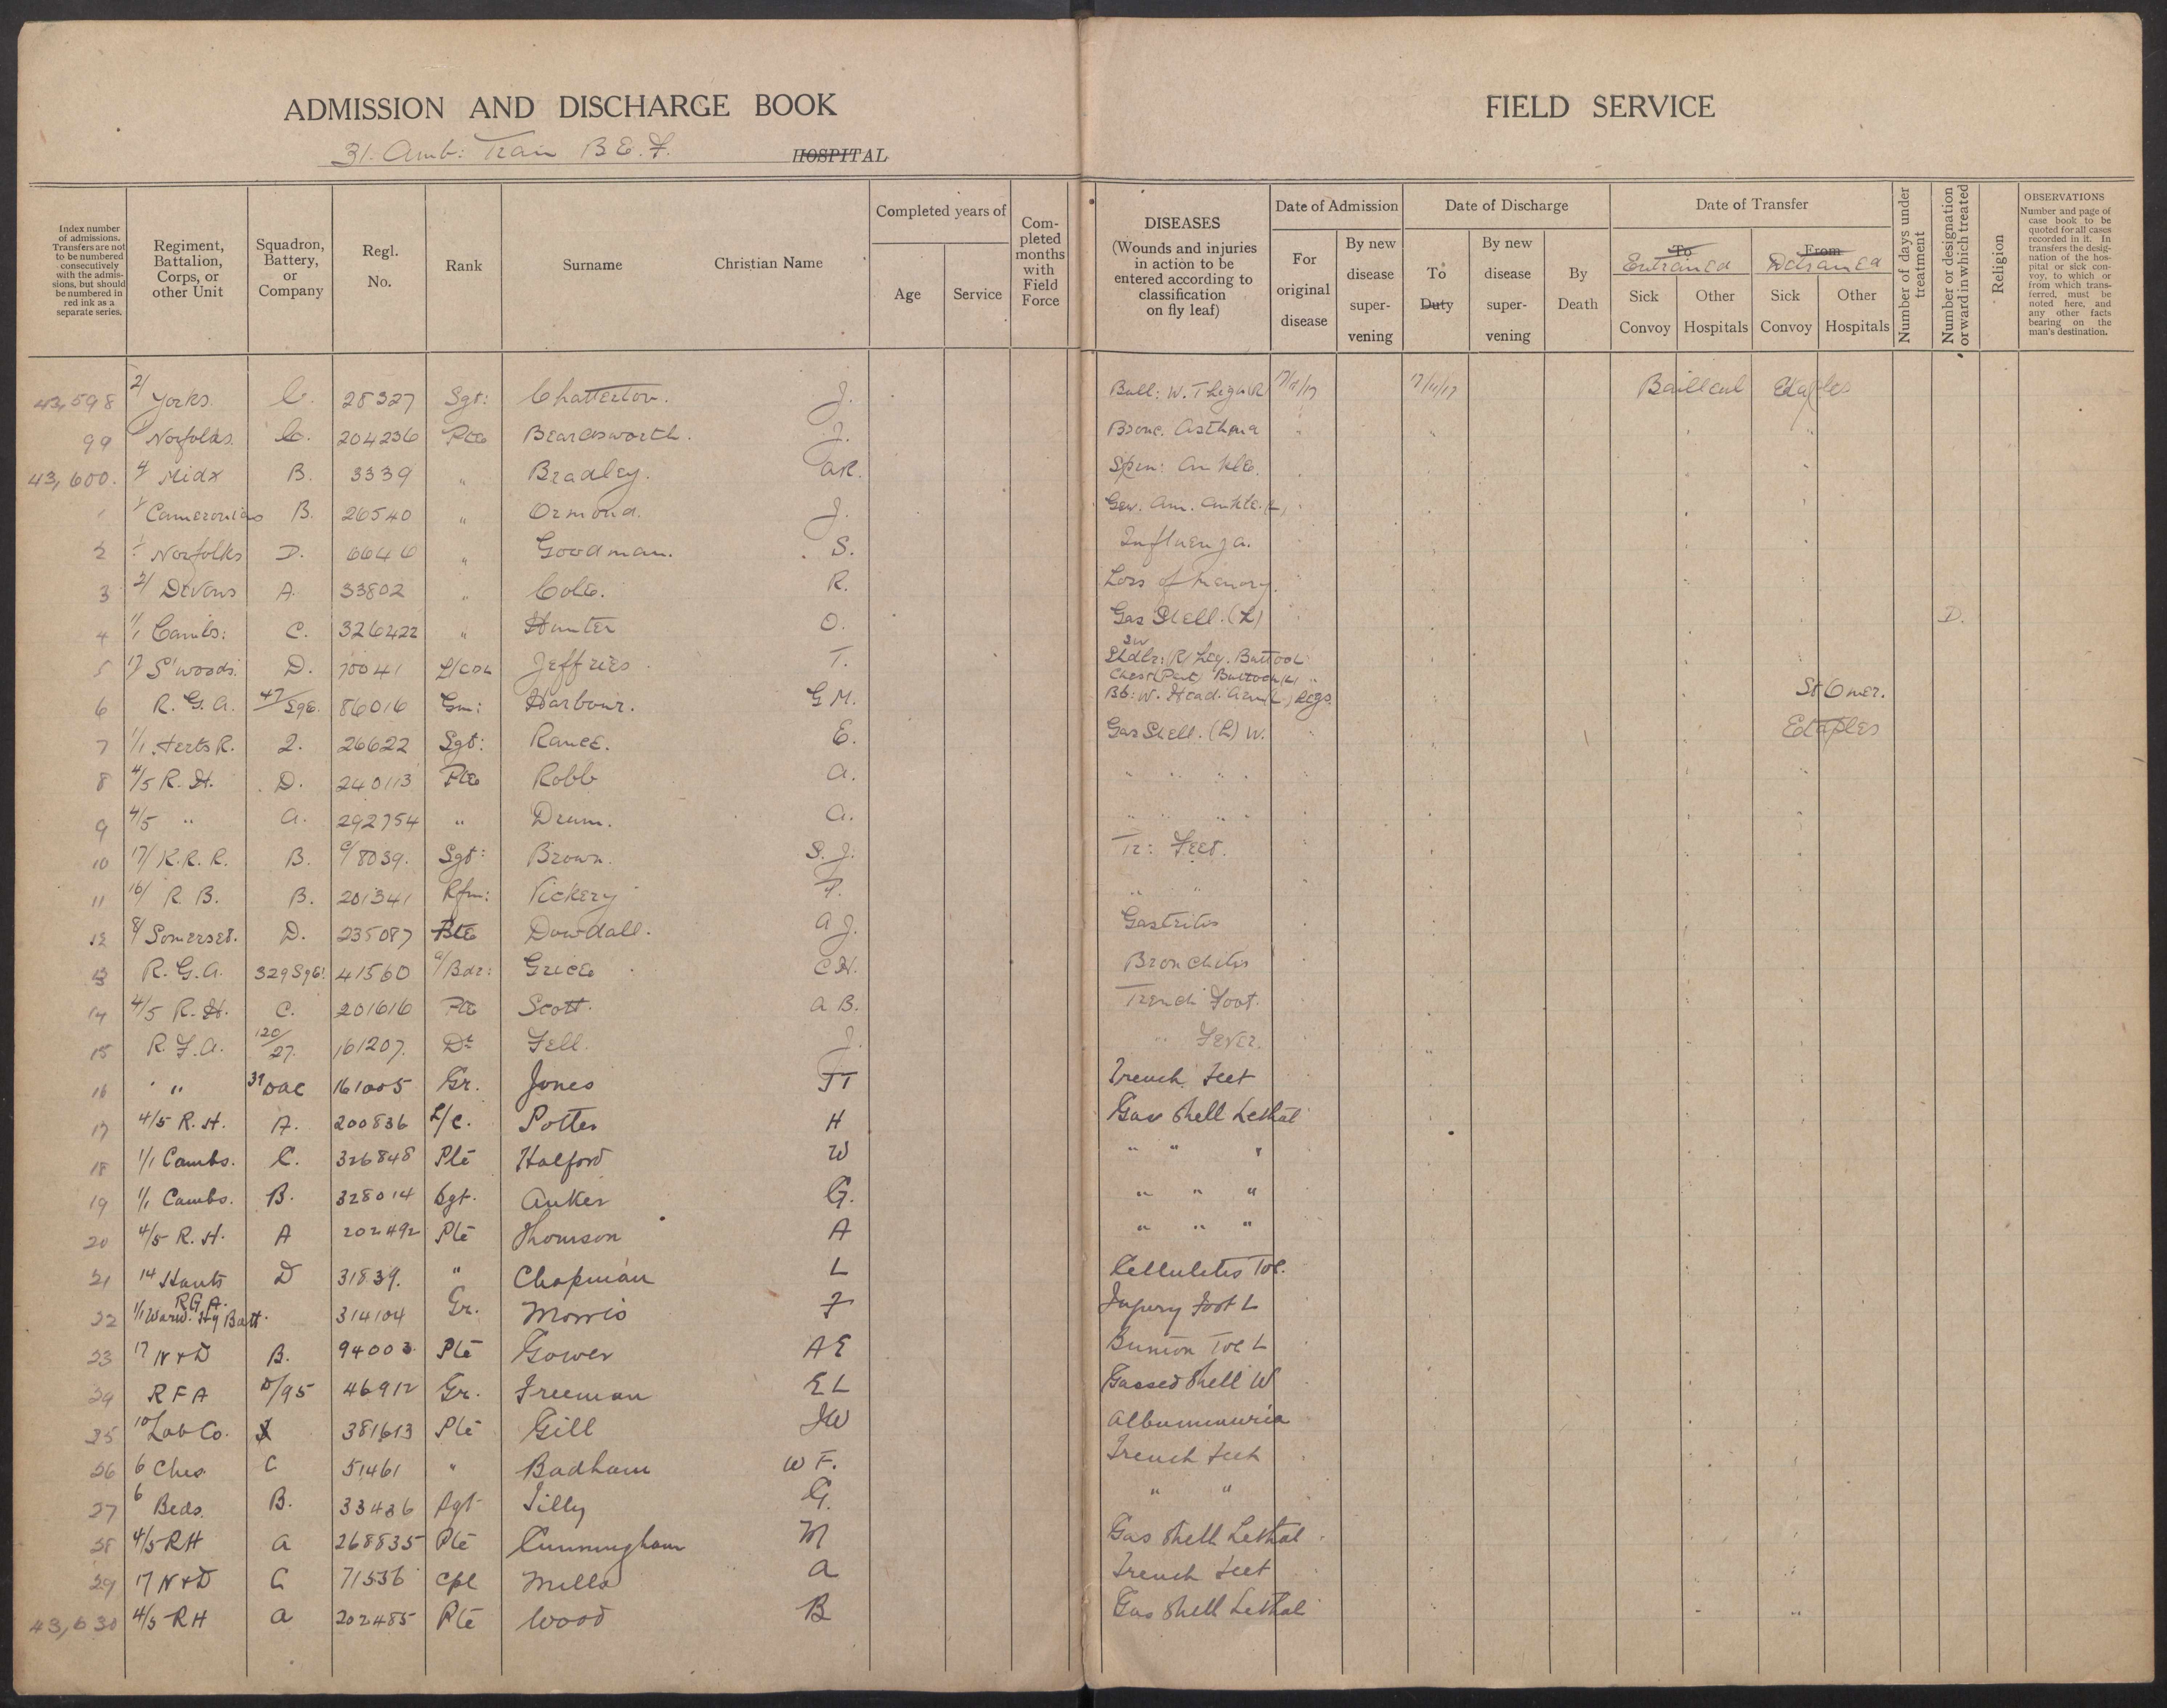 ADMISSION AND DISCHARGE BOOK
31. Amb: Train B.E.F. HOSPITAL
FIELD SERVICE
Index number of admissions. Transfers are not to be numbered consecutively with the admissions, but should be numbered in red ink as a separate series.
Regiment, Battalion, Corps, or other Unit
Squadron, Battery, or Company
Regl. No.
Rank
Surname
Christian Name
Completed years of
Age
Service
Completed months with Field Force
DISEASES (Wounds and injuries in action to be entered according to classification on fly leaf)
Date of Admission
For original disease
By new disease supervening
Date of Discharge
To Duty
By new disease supervening
By Death
Date of Transfer
To Entrained
From Detrained
Sick Convoy
Other Hospitals
Sick Convoy
Other Hospitals
Number of days under treatment
Number or designation or ward in which treated
Religion
OBSERVATIONS Number and page of case book to be quoted for all cases recorded in it. In transfers the designation of the hospital or sick convoy, to which or from which transferred, must be noted here, and any other facts bearing on the man's destination.
43,598 2/ Yorks. C. 28327 Sgt: Chatterton. J. Bull: W. Thigh R 17/11/17 Bailleul Etaples
99 Norfolks. C. 204236 Pte Beardsworth. J. Bronc. Asthma " "
43,600. 4/ Midx B. 3339 " Bradley. AR. Spn: Ankle.
1 Cameronians B. 26540 " Ormond. J. Gsw. Am. Ankle. L,
2 1/ Norfolks D. 6646 " Goodman. S. Influenza.
3 2/ Devons A. 33802 " Cole. R. Loss of Memory.
4 1/1 Cambs: C. 326422 " Hunter O. Gas Shell. (L) D.
5 17 S'woods. D. 70041 L/Col Jeffries. T. SW Shdlr: (R) Leg. Buttock
Chest (Pent) Buttock (L) "
6 R.G.A. 47/Sge. 86016 Gnr: Harbour. G M. Bb: W. Head. Arm (L) Legs. St Omer.
7 1/1 Herts R. 2. 26622 Sgt: Rance. E. Gas Shell. (L) W. Etaples
8 4/5 R.H. D. 240113 Pte Robb A. " " " "
9 4/5 " A. 292754 " Drum. A. " " " "
10 17/ K.R.R. B. C/8039. Sgt: Brown. S. J. Tr: Feet.
11 16/ R.B. B. 201341 Rfm: Vickery F. " "
12 8/ Somerset. D. 235087 Pte Dowdall. A J. Gastritis
13 R.G.A. 329 Sge: 41560 A/Bdr: Grice C H. Bronchitis
14 4/5 R.H. C. 201616 Pte Scott. A B. Trench Foot.
15 R.F.A. 120/27. 161207. Dr Fell. J. " Fever.
16 " 39 DAC 161005 Gr. Jones JT Trench Feet
17 4/5 R.H. A. 200836 L/C. Potter H Gas Shell Lethal
18 1/1 Cambs. C. 326848 Pte Halford W " " "
19 1/1 Cambs. B. 328014 Sgt. Anker G. " " "
20 4/5 R.H. A 202492 Pte Thomson A " " "
21 14 Hants D 31839. " Chapman L Cellulitis Toe.
22 1/1 Warw. Hy Batt. R.G.A. 314104 Gr. Morris F Injury Foot L
23 17 N+D B. 94003 Pte Gower AE Bunion Toe L
24 RFA D/95 46912 Gr. Freeman EL Gassed Shell W
25 10 Lab Co. 381613 Pte Gill JW Albuminuria
26 6 Ches C 51461 " Badham W F. Trench Feet
27 6 Beds. B. 33436 Sgt Tilly G. " "
28 4/5 RH A 268835 Pte Cunningham M Gas Shell Lethal
29 17 N+D C 71536 Cpl Mills A Trench Feet
43,630 4/5 RH A 202485 Pte Wood B Gas Shell Lethal